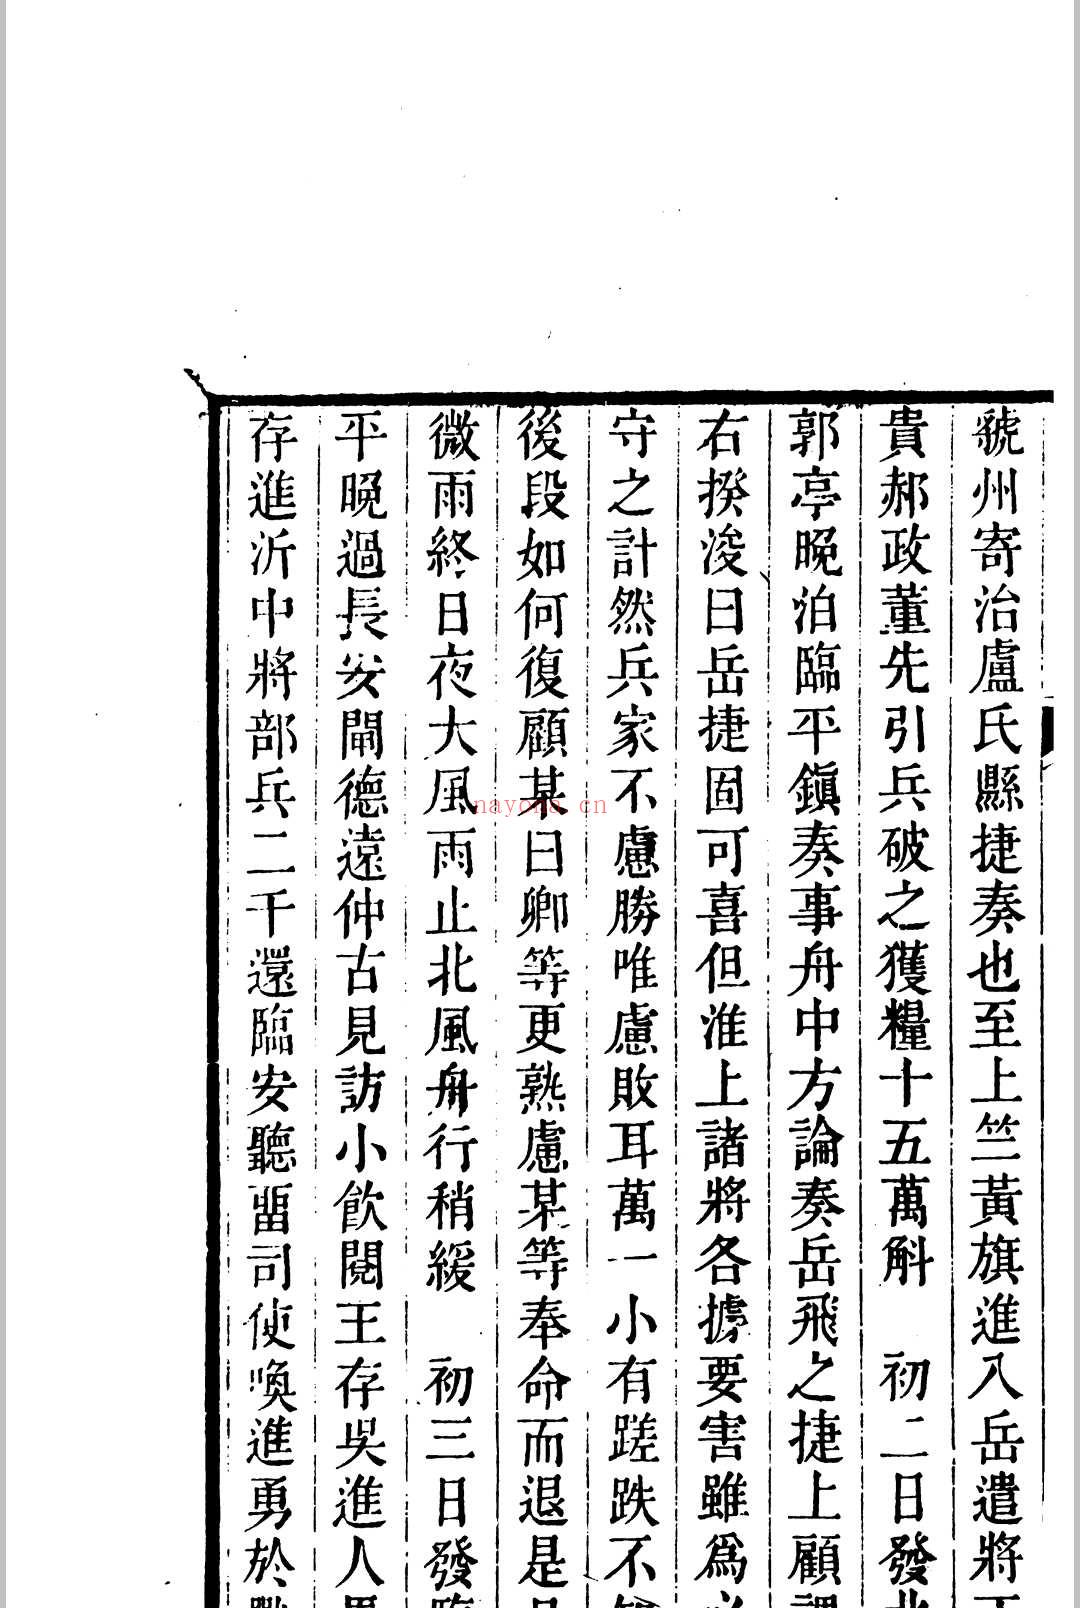 虢州寄治盧氏縣捷奏也至上竺黃旗進入岳遣將王
貴郝政董先引兵破之獲糧十五萬斛　初二日發北
郭亭晚泊臨平鎮奏事舟中方論奏岳飛之捷上顧謂
右揆浚曰岳捷固可喜但淮上諸將各據要害雖爲必
守之計然兵家不慮勝唯慮敗耳萬一小有蹉跌不知
後段如何復顧某曰卿等更熟慮某等奉命而退是
微雨終日夜大風雨止北風舟行稍緩　初三日發臨
平晚過長安閘德遠仲古見訪小飲閱王存吳進人
存進沂中將部兵二千還臨安聽畱司使喚進勇於戰
nayona.cn